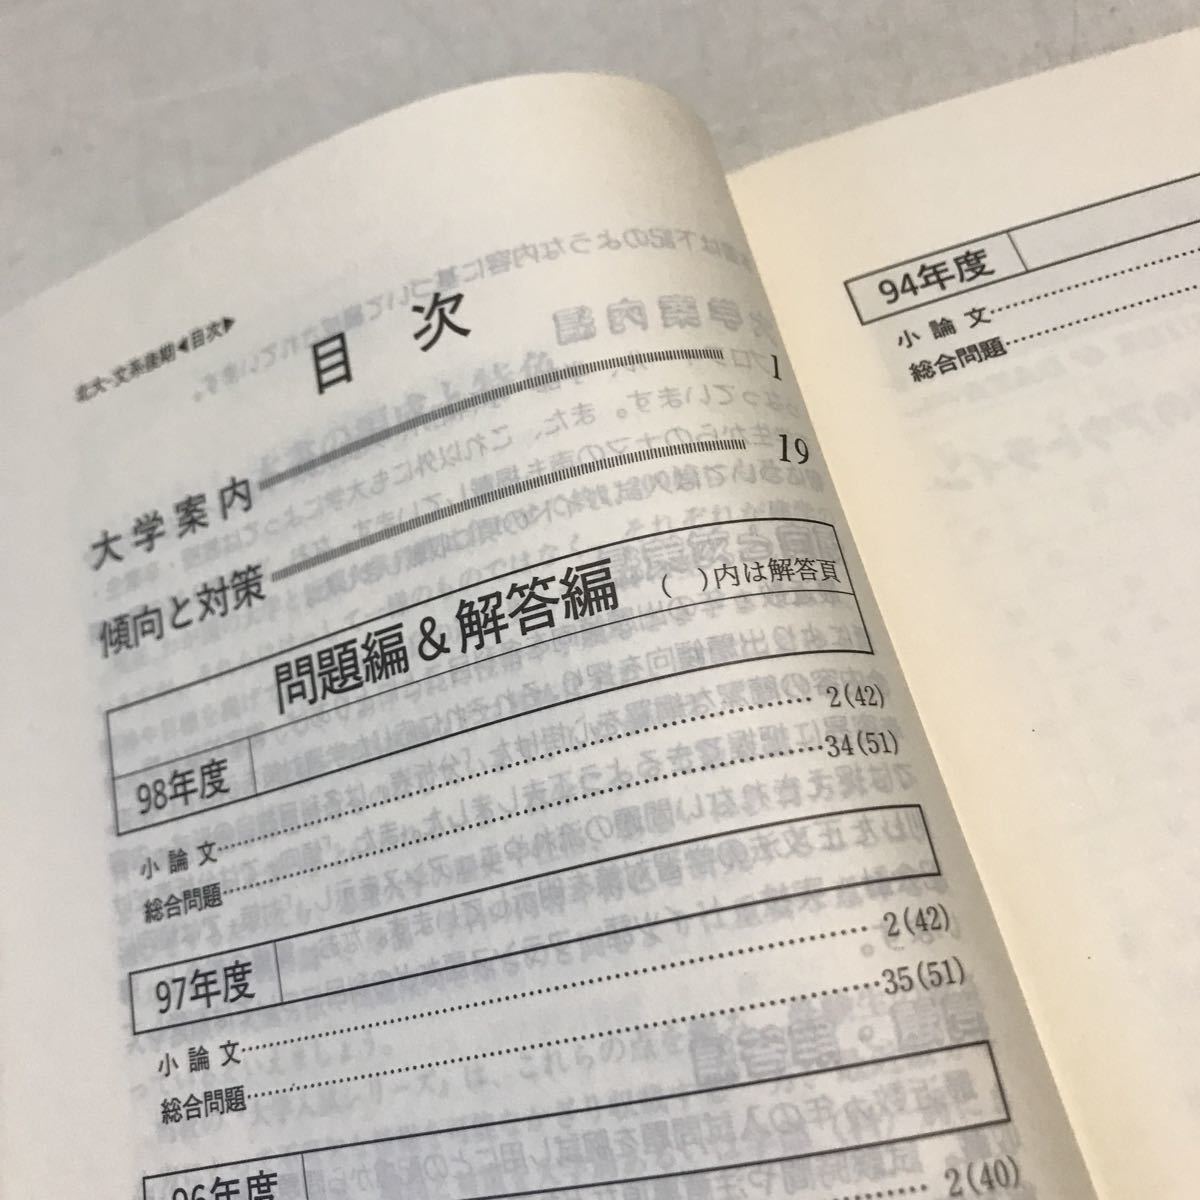 北大・文系後期◀目次▶
目次
大学案内 1
傾向と対策 19
問題編&解答編 ( )内は解答頁
98年度
小論文 2(42)
総合問題 34(51)
97年度
小論文 2(42)
総合問題 35(51)
96年度
2(40)
94年度
小論文
総合問題